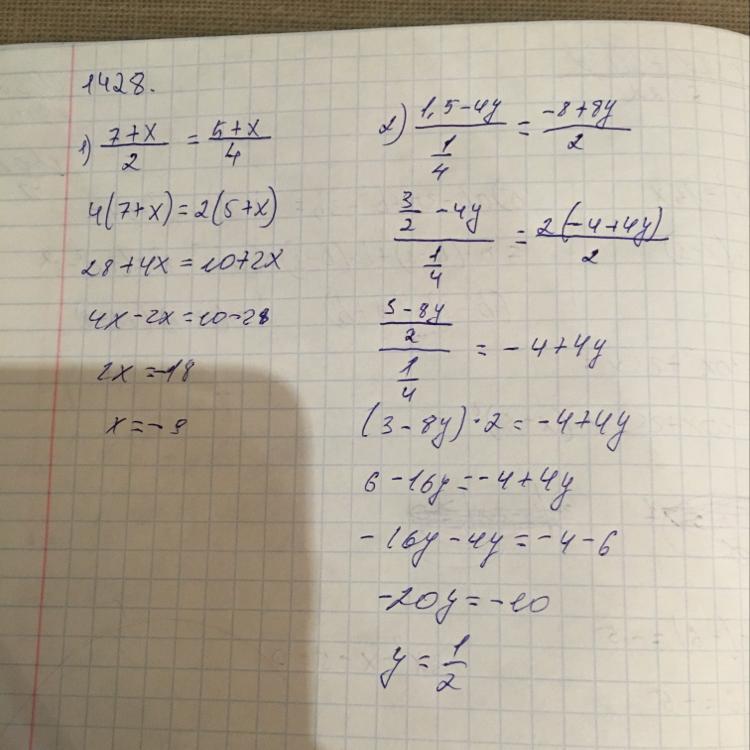 1428.
1) (7+x)/2 = (5+x)/4
4(7+x)=2(5+x)
28+4x=10+2x
4x-2x=10-28
2x=-18
x=-9
2) (1,5-4y)/(1/4) = (-8+8y)/2
(3/2 -4y)/(1/4) = 2(-4+4y)/2
((3-8y)/2)/(1/4) = -4+4y
(3-8y)·2=-4+4y
6-16y=-4+4y
-16y-4y=-4-6
-20y=-10
y=1/2